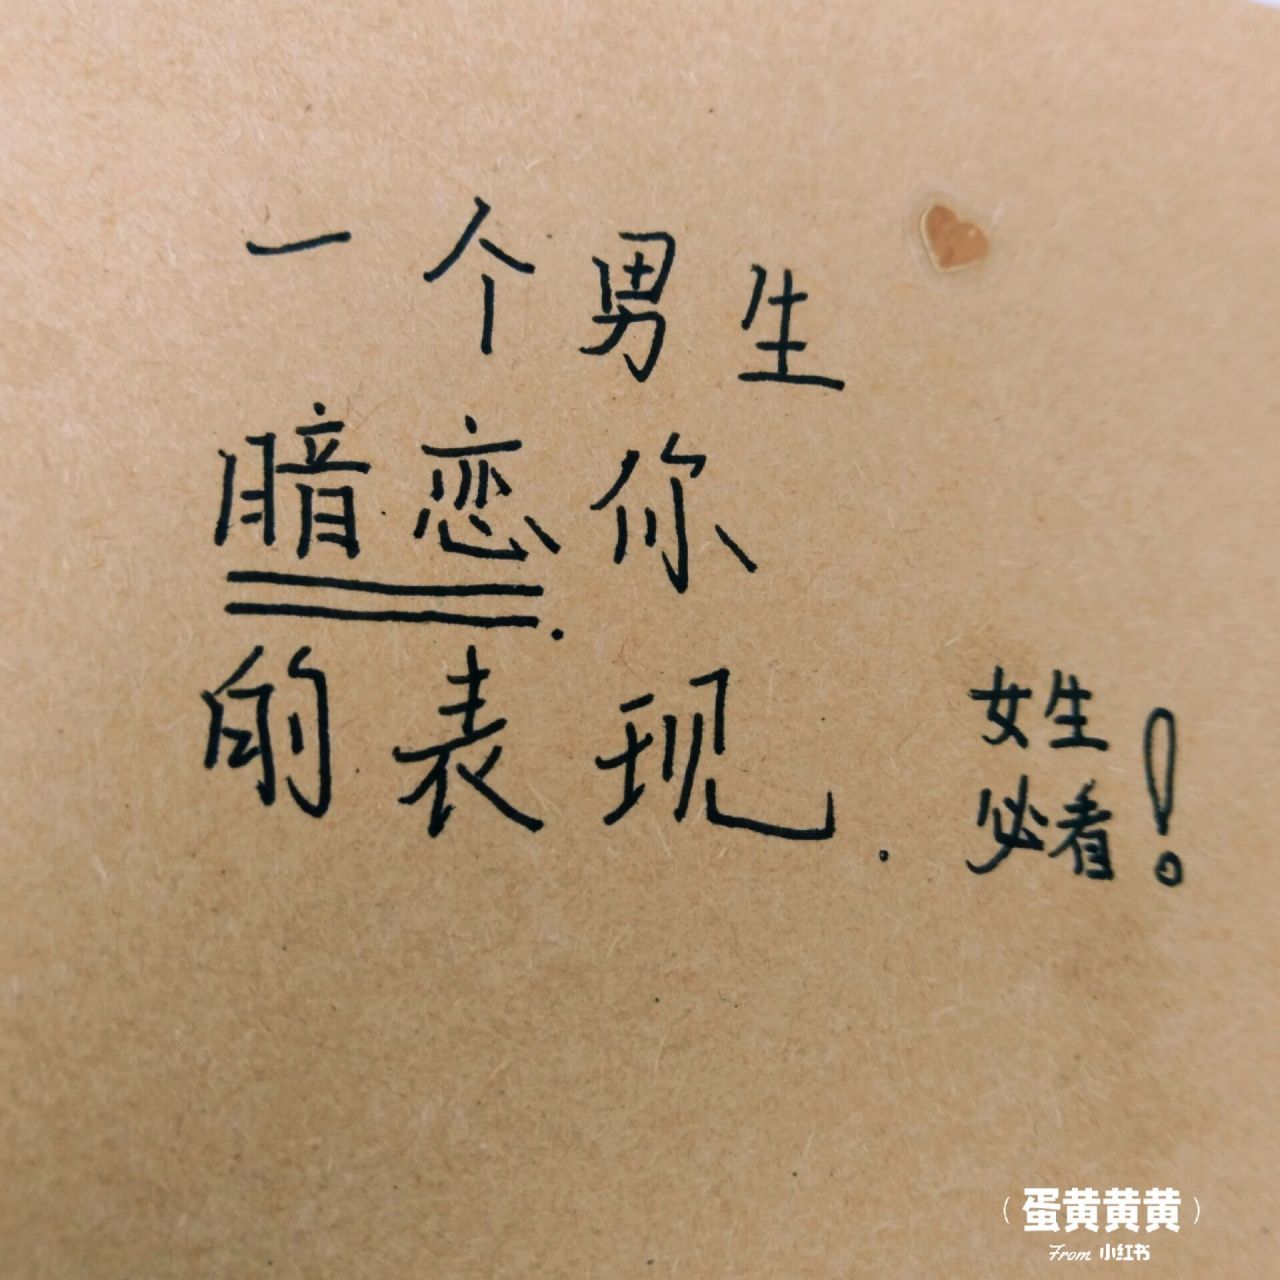 一个男生
暗恋你
的表现.
女生
必看!
(蛋黄黄黄)
From 小红书